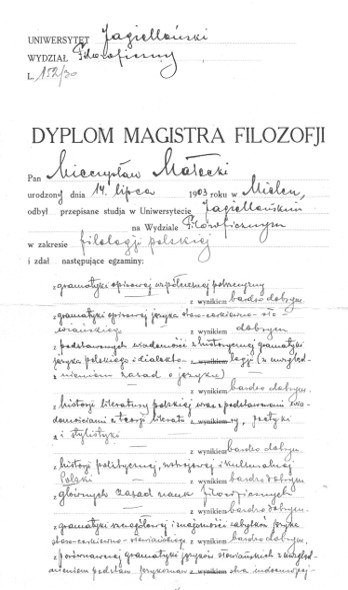 UNIWERSYTET Jagielloński
WYDZIAŁ Filozoficzny
L. 152/30
DYPLOM MAGISTRA FILOZOFJI
Pan Mieczysław Małecki
urodzony dnia 14. lipca 1903 roku w Mielcu,
odbył przepisane studja w Uniwersytecie Jagiellońskim
na Wydziale Filozoficznym
w zakresie filologji polskiej
i zdał następujące egzaminy:
z gramatyki opisowej współczesnej polszczyzny
z wynikiem bardzo dobrym.
z gramatyki opisowej języka staro-cerkiewno-sło-
wiańskiego z wynikiem dobrym
z podstawowych wiadomości z historycznej gramatyki
języka polskiego i dialekto- z wynikiem logji (z uwzględ-
nieniem zasad o języku)
z wynikiem bardzo dobrym.
z historji literatury polskiej wraz z podstawowemi wia-
domościami z teorji literatu z wynikiem ry, poetyki
i stylistyki
z wynikiem bardzo dobrym.
z historji politycznej, ustrojowej i kulturalnej
Polski z wynikiem bardzo dobrym
z głównych zasad nauk filozoficznych
z wynikiem bardzo dobrym.
z gramatyki szczegółowej i znajomości zabytków języka
staro-cerkiewno-słowiańskiego z wynikiem bardzo dobrym,
z porównawczej gramatyki języków słowiańskich z uwzględ-
nieniem podstaw językoznaw z wynikiem stwa indoeuropej-